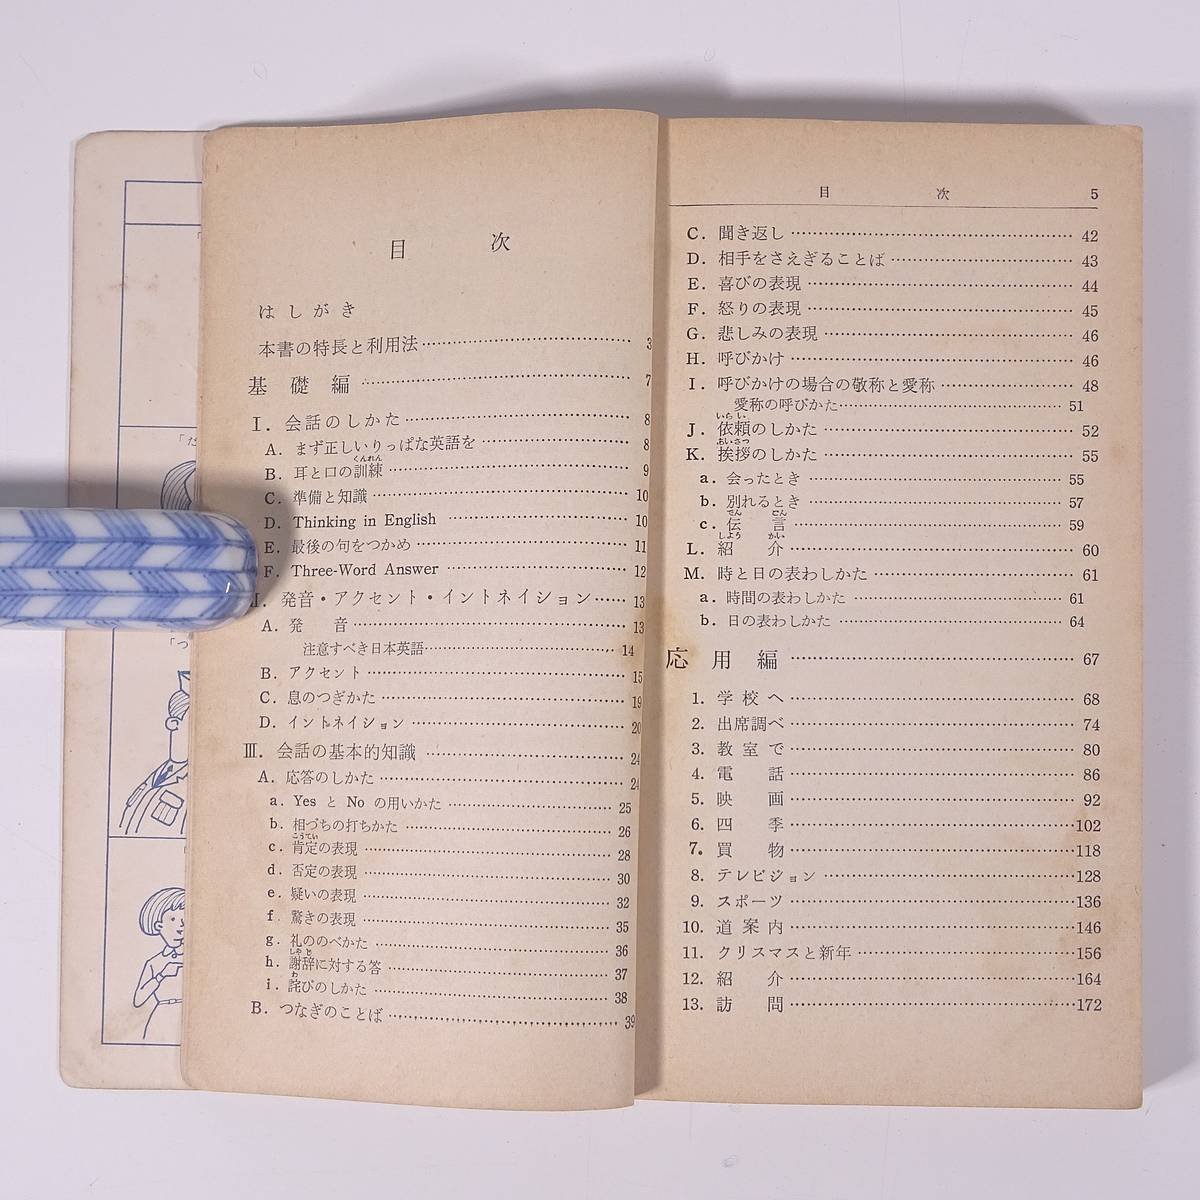 目次
はしがき
本書の特長と利用法 3
基礎編 7
Ⅰ. 会話のしかた 8
A. まず正しいりっぱな英語を 8
B. 耳と口の訓練 9
くんれん
C. 準備と知識 10
D. Thinking in English 10
E. 最後の句をつかめ 11
F. Three-Word Answer 12
Ⅱ. 発音・アクセント・イントネイション 13
A. 発音 13
注意すべき日本英語 14
B. アクセント 15
C. 息のつぎかた 19
D. イントネイション 20
Ⅲ. 会話の基本的知識 24
A. 応答のしかた 24
a. Yes と No の用いかた 25
b. 相づちの打ちかた 26
こうてい
c. 肯定の表現 28
d. 否定の表現 30
e. 疑いの表現 32
f. 驚きの表現 35
g. 礼ののべかた 36
しゃじ
h. 謝辞に対する答 37
わ
i. 詫びのしかた 38
B. つなぎのことば 39
目次 5
C. 聞き返し 42
D. 相手をさえぎることば 43
E. 喜びの表現 44
F. 怒りの表現 45
G. 悲しみの表現 46
H. 呼びかけ 46
I. 呼びかけの場合の敬称と愛称 48
愛称の呼びかた 51
いらい
J. 依頼のしかた 52
あいさつ
K. 挨拶のしかた 55
a. 会ったとき 55
b. 別れるとき 57
でん ごん
c. 伝言 59
しよう かい
L. 紹介 60
M. 時と日の表わしかた 61
a. 時間の表わしかた 61
b. 日の表わしかた 64
応用編 67
1. 学校へ 68
2. 出席調べ 74
3. 教室で 80
4. 電話 86
5. 映画 92
6. 四季 102
7. 買物 118
8. テレビジョン 128
9. スポーツ 136
10. 道案内 146
11. クリスマスと新年 156
12. 紹介 164
13. 訪問 172